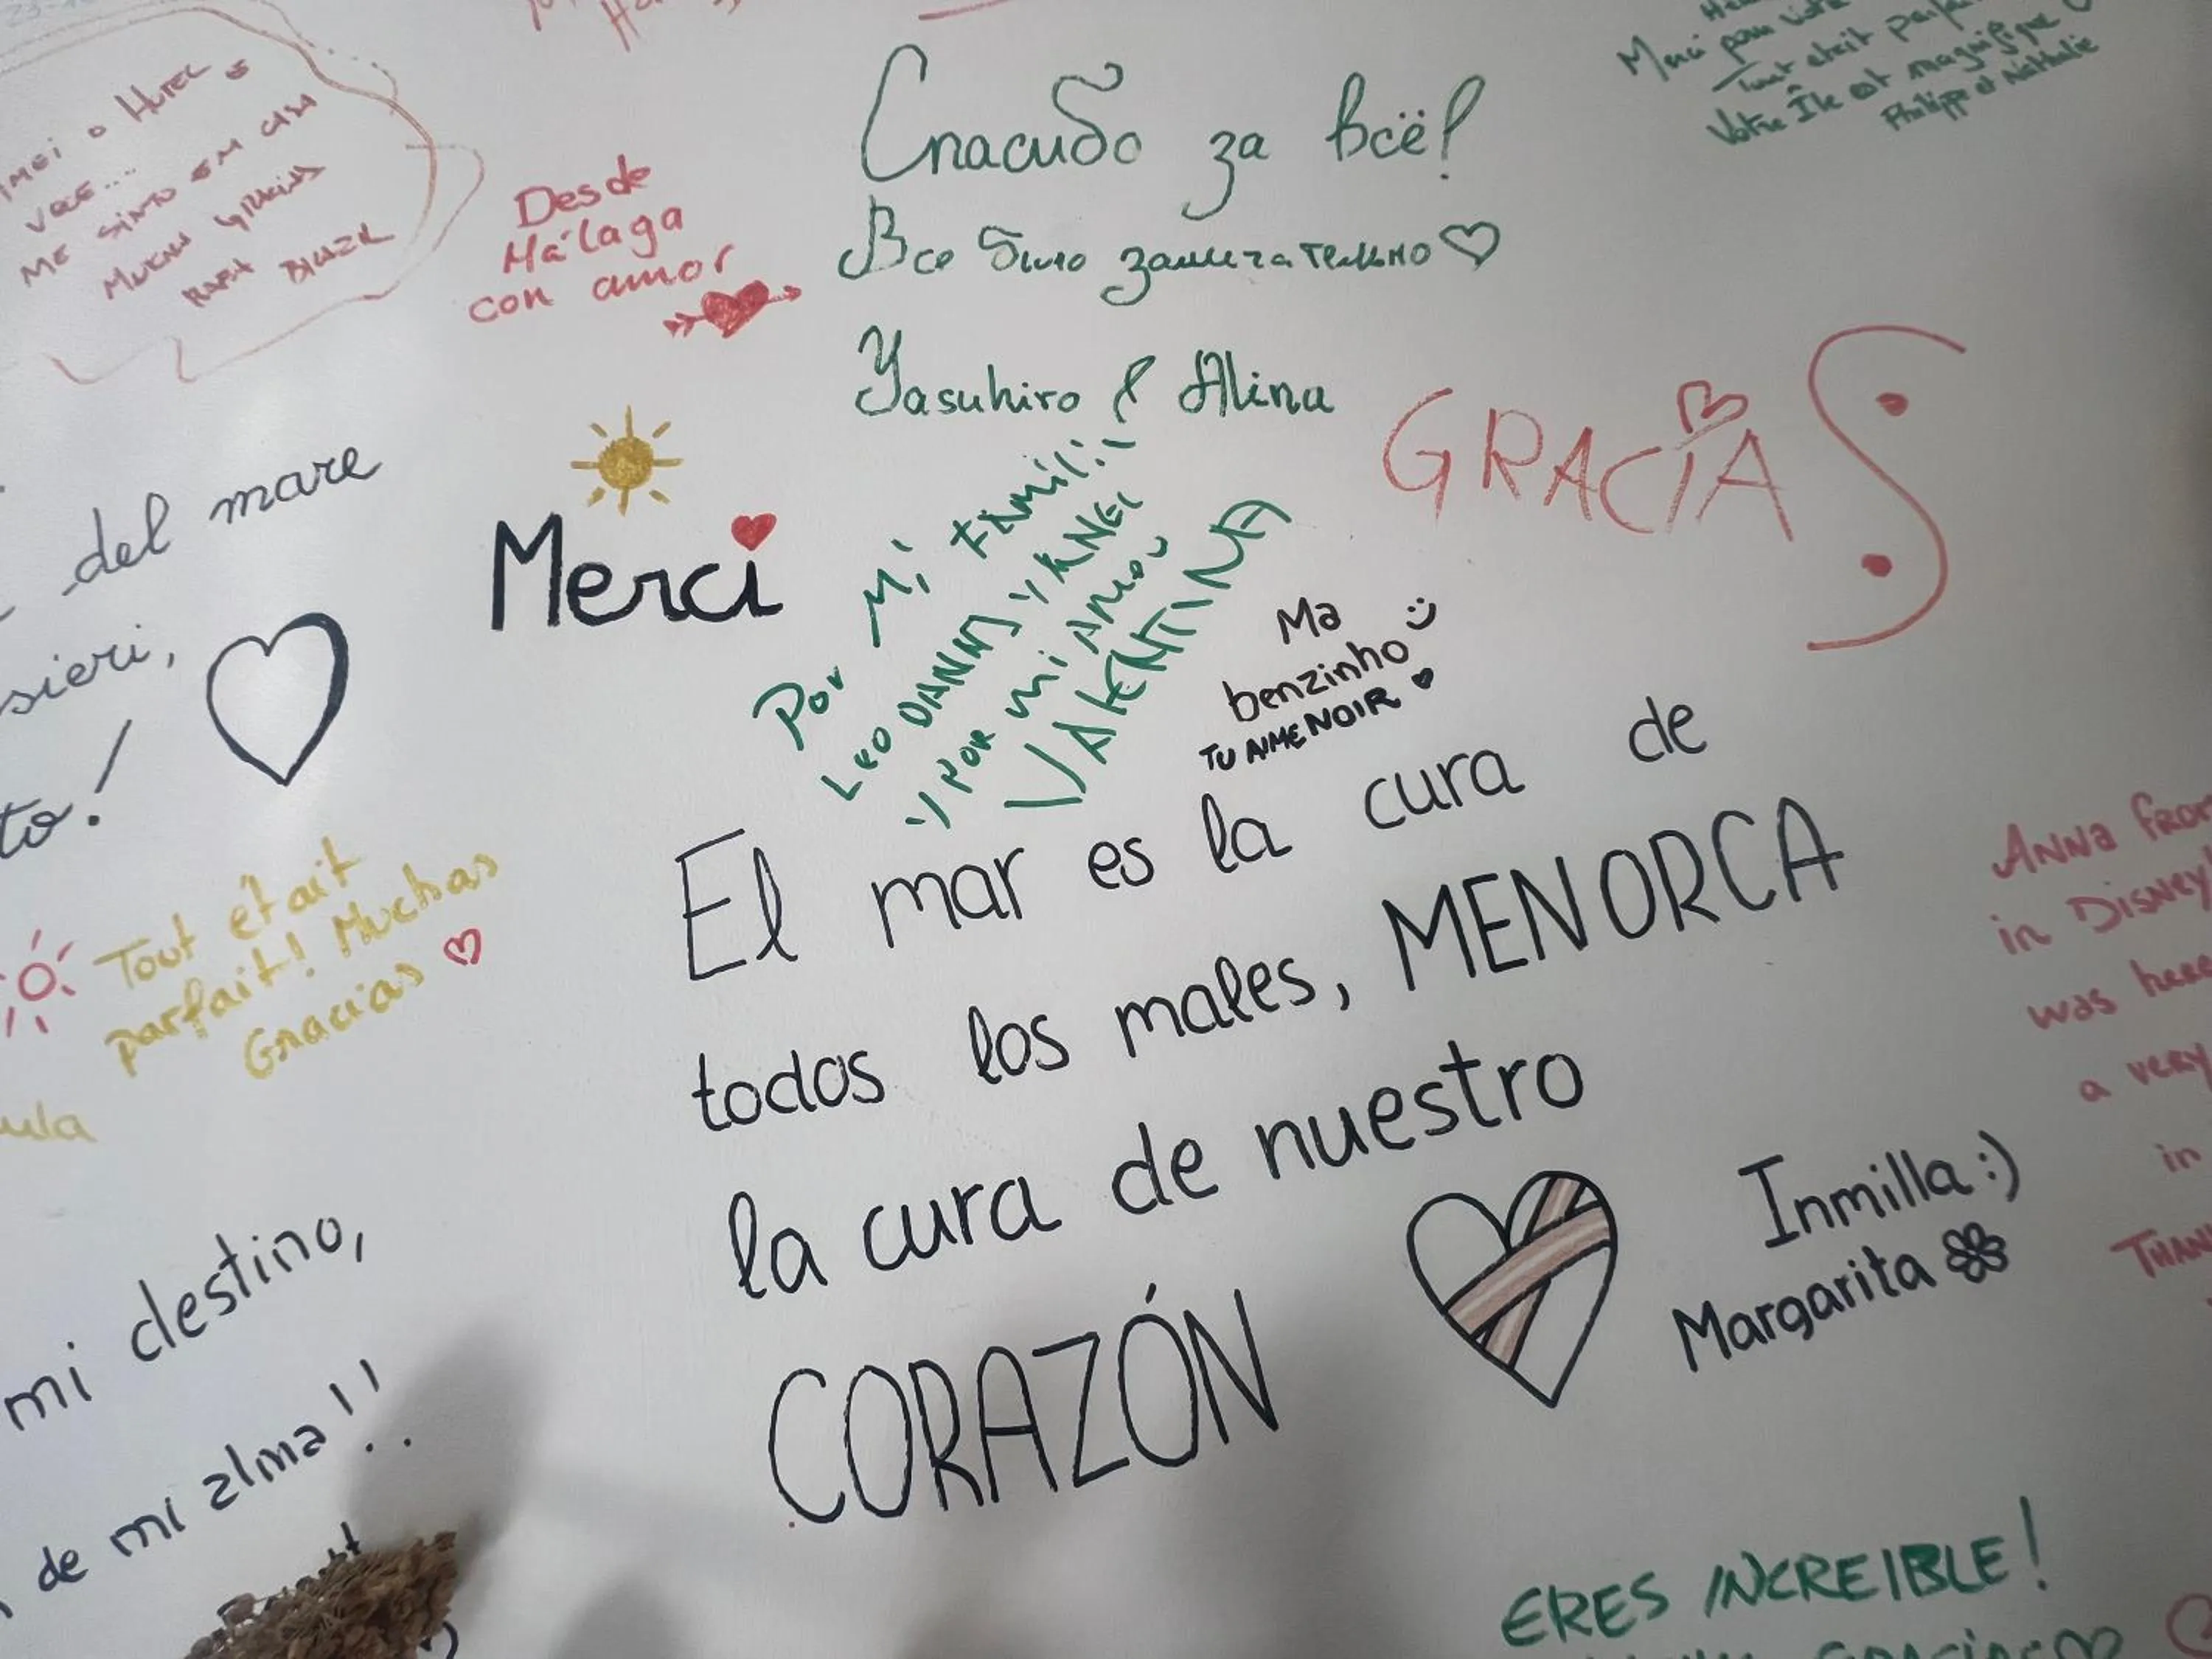 Merci pour votre
Tout était parfait
Votre Île est magnifique
Philippe et Nathalie
HOTEL E
ME SINTO EM CASA
Desde
Málaga
con amor
Спасибо за всё!
Все было замечательно
Yasuhiro & Alina
GRACIAS
del mare
sieri,
to!
Merci
Por Mi
LEO DANNY Y
Y POR mi AMOR
VALENTINA
Ma
benzinho
TU AIME NOIR
Tout était
parfait! Muchas
Gracias
ula
El mar es la cura de
todos los males, MENORCA
la cura de nuestro
CORAZÓN
Inmilla :)
Margarita
ANNA FROM
in DISNEY
was here
a very
in
THAN
mi destino,
de mi alma!!
ERES INCREIBLE!
GRACIAS